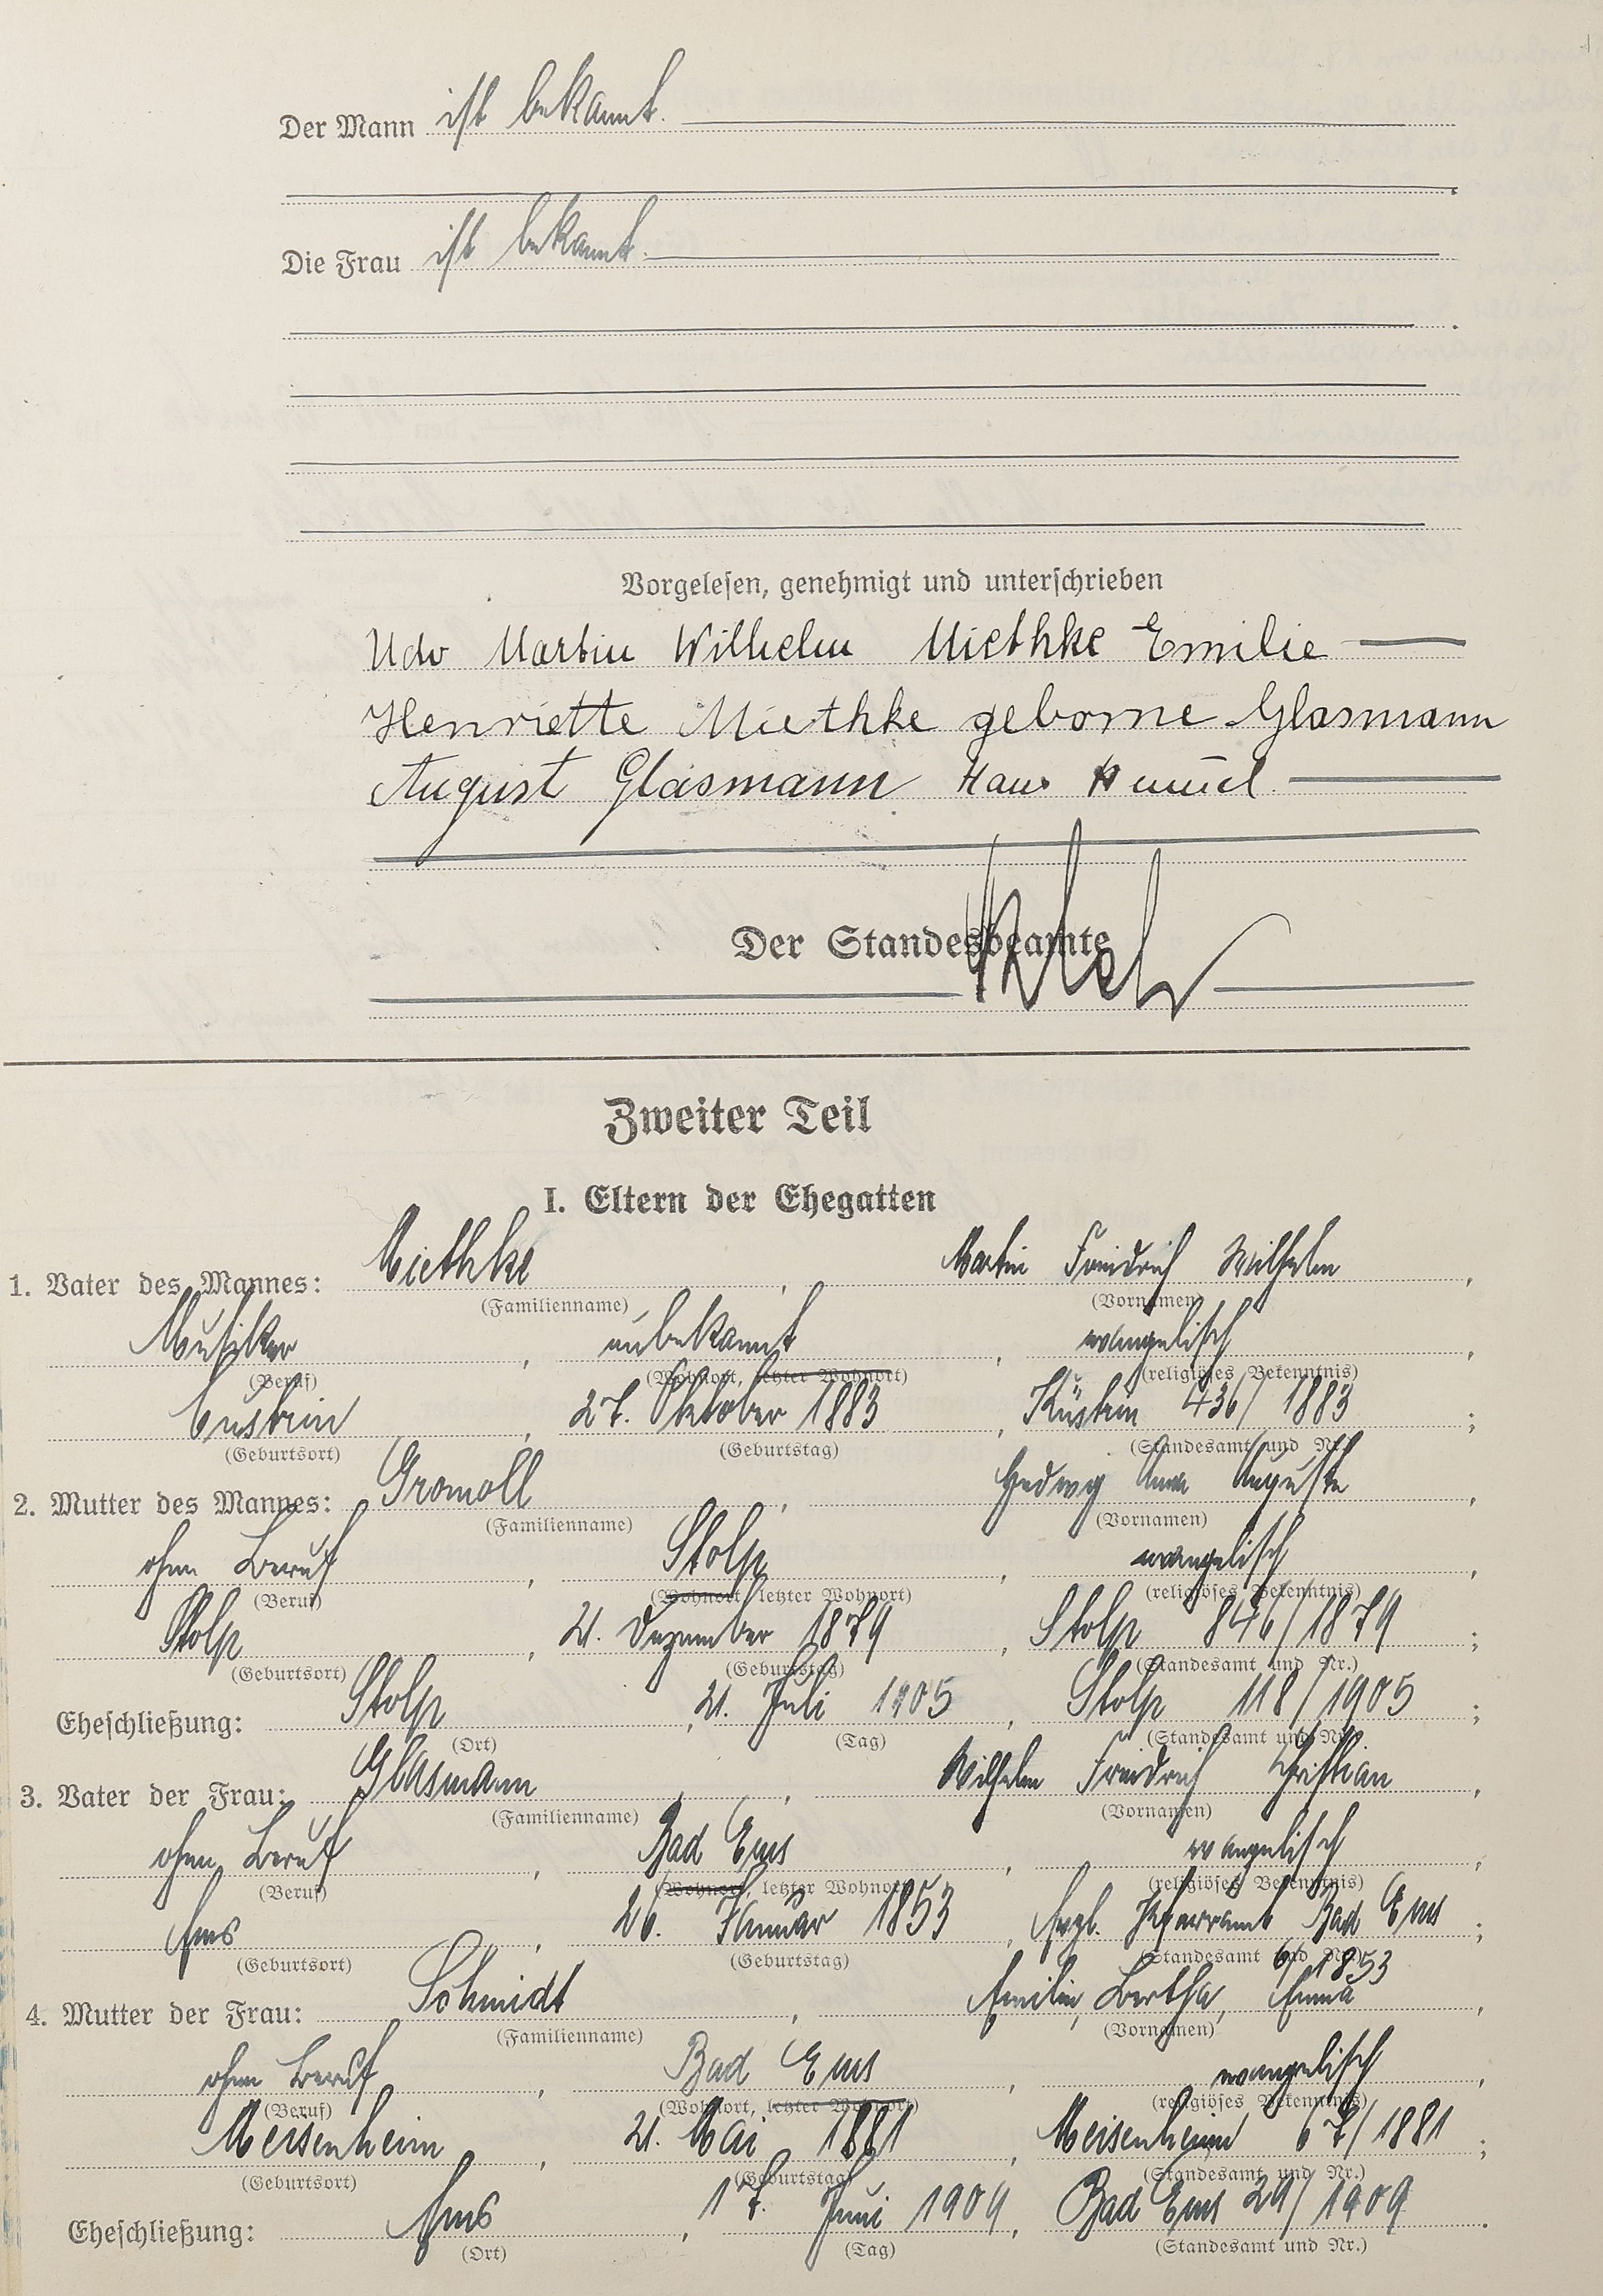 Der Mann ist bekannt.
Die Frau ist bekannt.
Vorgelesen, genehmigt und unterschrieben
Udo Martin Wilhelm Miethke Emilie
Henriette Miethke geborne Glasmann
August Glasmann Hans
Der Standesbeamte
Zweiter Teil
I. Eltern der Ehegatten
1. Vater des Mannes: Miethke, Martin Friedrich Wilhelm,
(Familienname) (Vornamen)
Musiker, unbekannt, evangelisch,
(Beruf) (Wohnort, letzter Wohnort) (religiöses Bekenntnis)
Cüstrin, 27. Oktober 1883, Küstrin 436/1883;
(Geburtsort) (Geburtstag) (Standesamt und Nr.)
2. Mutter des Mannes: Gromoll, Hedwig Anna Auguste,
(Familienname) (Vornamen)
ohne Beruf, Stolp, evangelisch,
(Beruf) (Wohnort, letzter Wohnort) (religiöses Bekenntnis)
Stolp, 21. Dezember 1879, Stolp 846/1879;
(Geburtsort) (Geburtstag) (Standesamt und Nr.)
Eheschließung: Stolp, 21. Juli 1905, Stolp 118/1905;
(Ort) (Tag) (Standesamt und Nr.)
3. Vater der Frau: Glasmann, Wilhelm Friedrich Christian,
(Familienname) (Vornamen)
ohne Beruf, Bad Ems, evangelisch,
(Beruf) (Wohnort, letzter Wohnort) (religiöses Bekenntnis)
Ems, 26. Januar 1853, Evgl. Pfarramt Bad Ems;
(Geburtsort) (Geburtstag) (Standesamt und Nr.) 6/1853
4. Mutter der Frau: Schmidt, Emilie, Bertha, Emma,
(Familienname) (Vornamen)
ohne Beruf, Bad Ems, evangelisch,
(Beruf) (Wohnort, letzter Wohnort) (religiöses Bekenntnis)
Meisenheim, 21. Mai 1881, Meisenheim 67/1881;
(Geburtsort) (Geburtstag) (Standesamt und Nr.)
Eheschließung: Ems, 17. Juni 1909, Bad Ems 29/1909.
(Ort) (Tag) (Standesamt und Nr.)